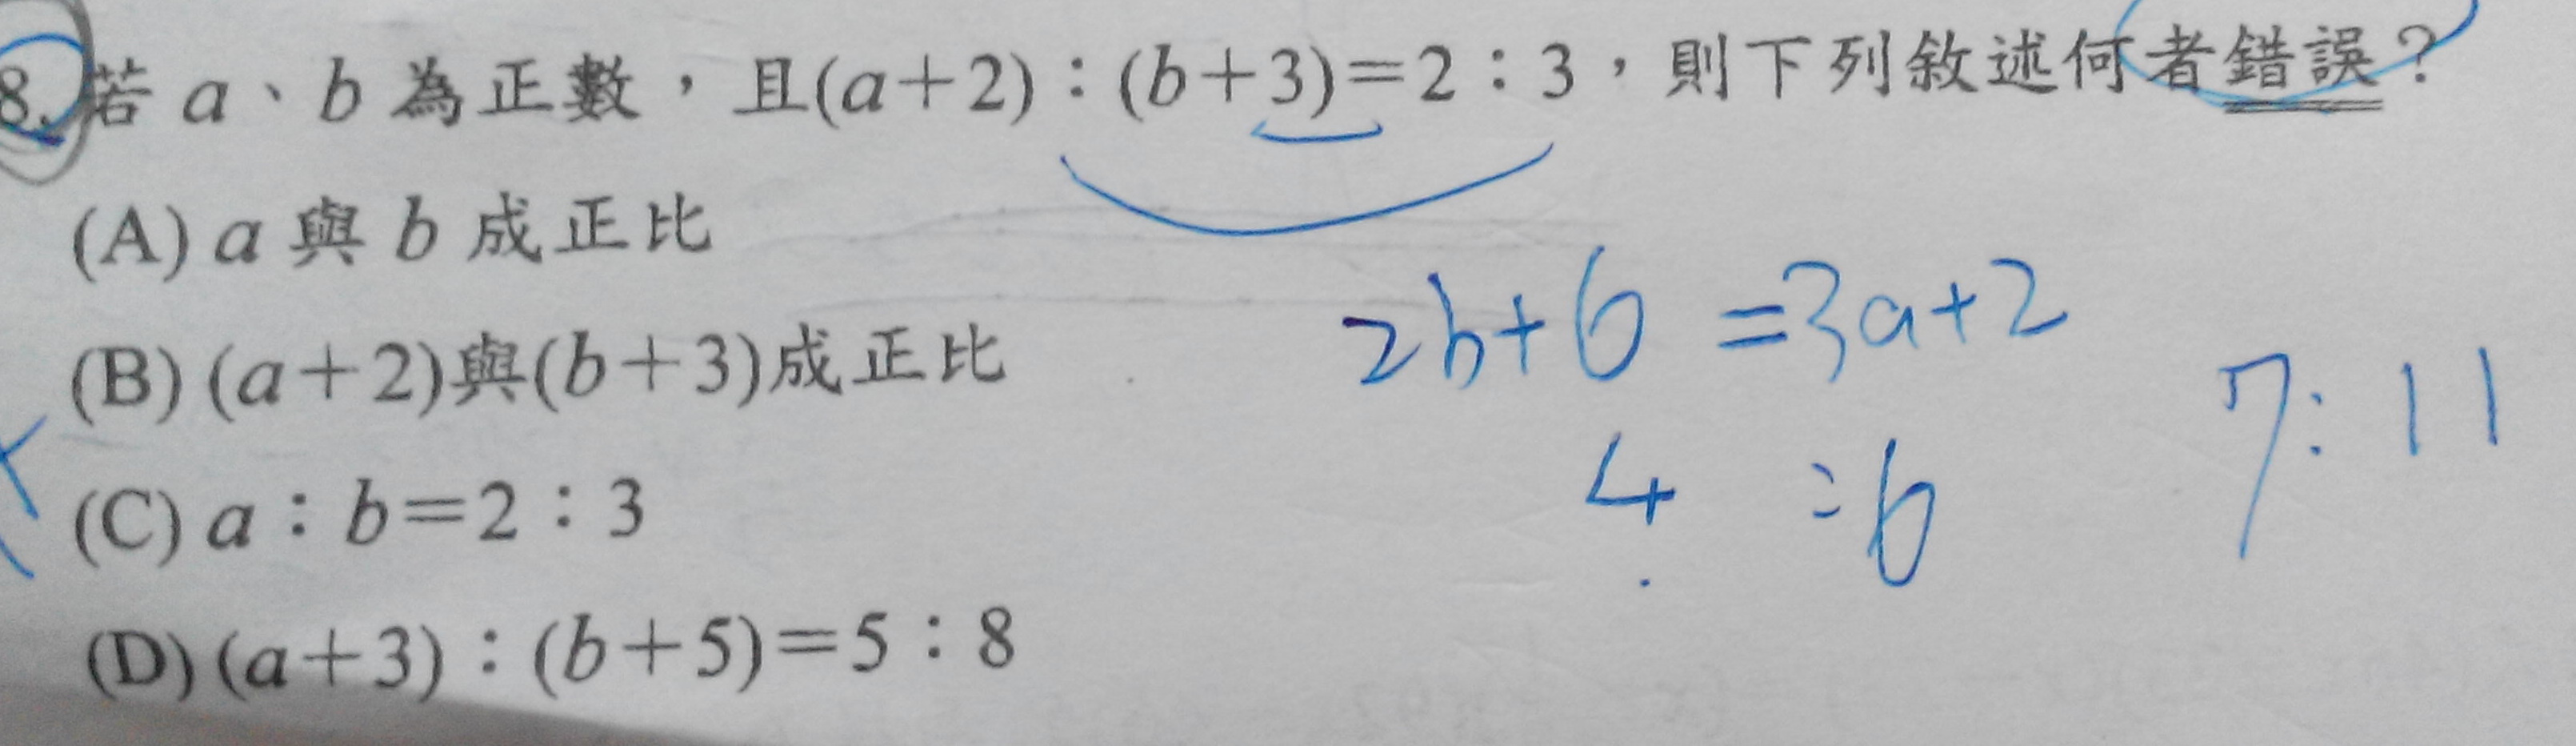 8. 若 a、b 為正數，且(a+2)：(b+3)=2：3，則下列敘述何者錯誤？
(A) a 與 b 成正比
(B) (a+2)與(b+3)成正比
2b+6 =3a+2
7: 11
(C) a：b=2：3
4 :6
(D) (a+3)：(b+5)=5：8